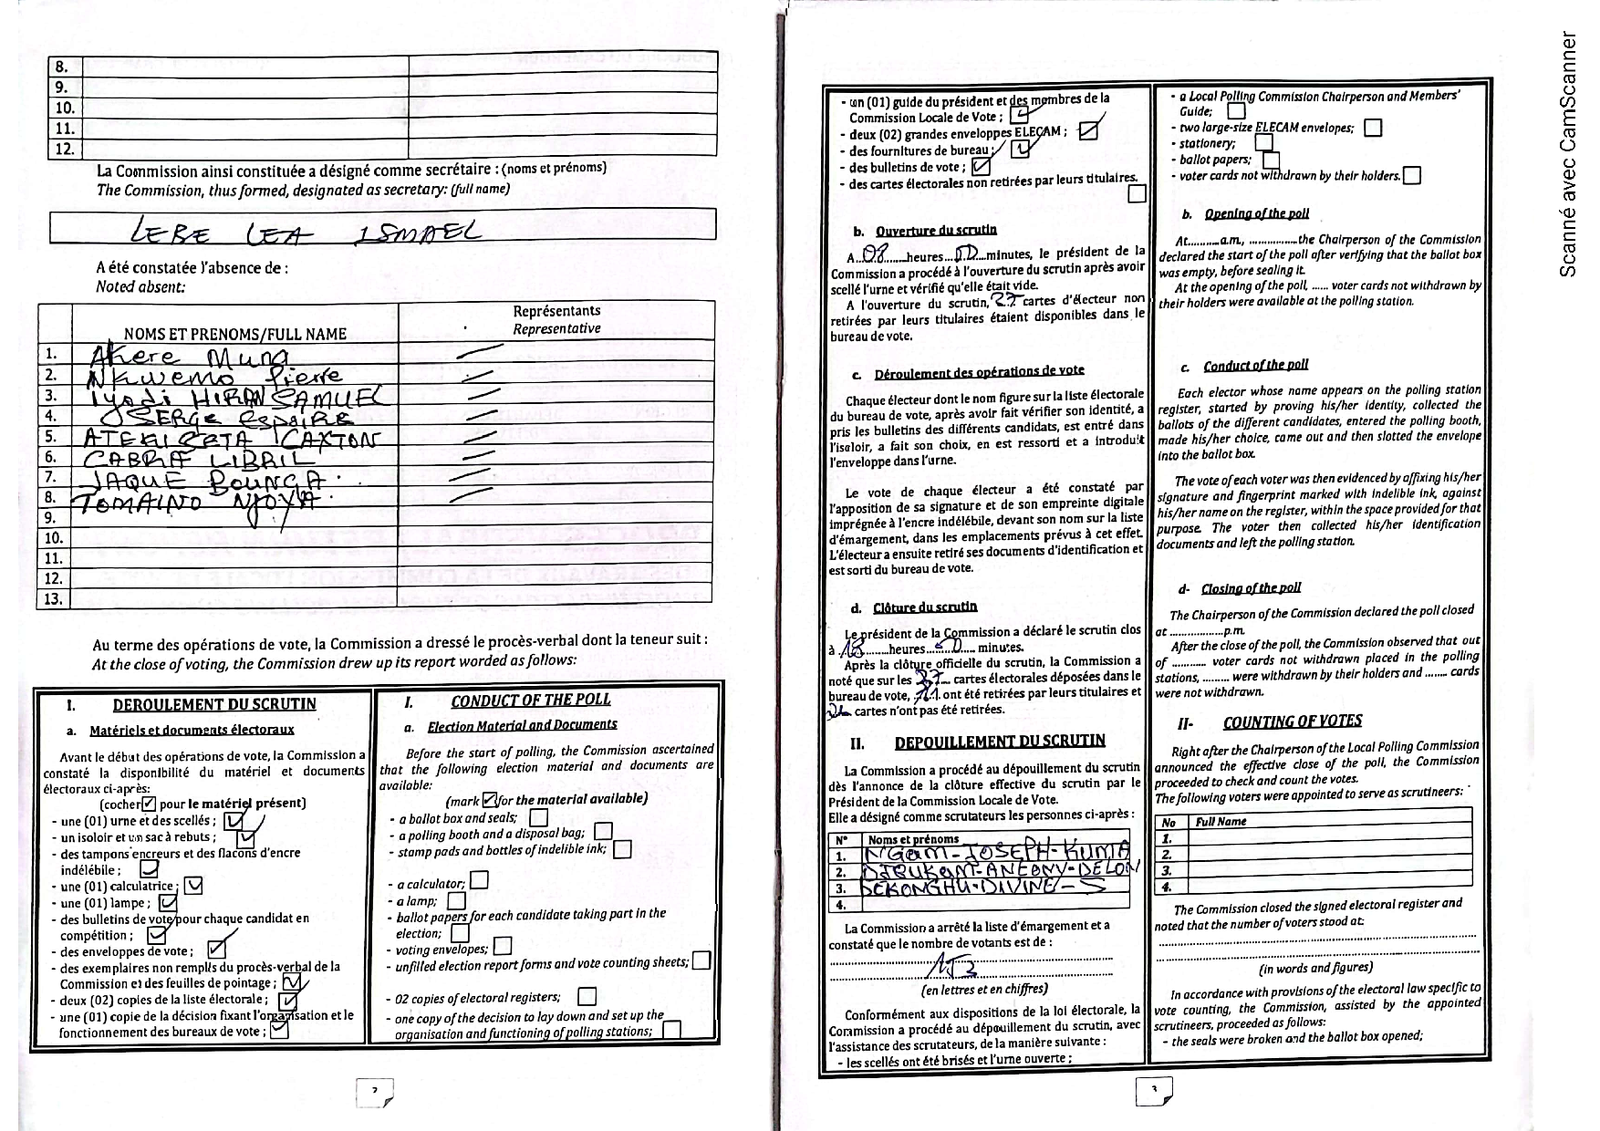 8.
9.
10.
11.
12.
La Commission ainsi constituée a désigné comme secrétaire : (noms et prénoms)
The Commission, thus formed, designated as secretary: (full name)
LEBE LEA ISMAEL
A été constatée l'absence de :
Noted absent:
NOMS ET PRENOMS/FULL NAME
Représentants
Representative
1. Akere Muna
2. Nkwemo Pierre
3. Iyodi HIRAM SAMUEL
4. SERGE Espoire
5. CAXTON
6. CABRAL LIBRIL
7. JAQUE BOUNGA
8. TOMAINO NJOYA
9.
10.
11.
12.
13.
Au terme des opérations de vote, la Commission a dressé le procès-verbal dont la teneur suit :
At the close of voting, the Commission drew up its report worded as follows:
I. DEROULEMENT DU SCRUTIN
a. Matériels et documents électoraux
Avant le début des opérations de vote, la Commission a
constaté la disponibilité du matériel et documents
électoraux ci-après:
(cocher ☑ pour le matériel présent)
- une (01) urne et des scellés ; ☑
- un isoloir et un sac à rebuts ; ☑
- des tampons encreurs et des flacons d'encre
indélébile ; ☑
- une (01) calculatrice ; ☑
- une (01) lampe ; ☑
- des bulletins de vote pour chaque candidat en
compétition ; ☑
- des enveloppes de vote ; ☑
- des exemplaires non remplis du procès-verbal de la
Commission et des feuilles de pointage ; ☑
- deux (02) copies de la liste électorale ; ☑
- une (01) copie de la décision fixant l'organisation et le
fonctionnement des bureaux de vote ; ☑
I. CONDUCT OF THE POLL
a. Election Material and Documents
Before the start of polling, the Commission ascertained
that the following election material and documents are
available:
(mark ☑ for the material available)
- a ballot box and seals; ☐
- a polling booth and a disposal bag; ☐
- stamp pads and bottles of indelible ink; ☐
- a calculator; ☐
- a lamp; ☐
- ballot papers for each candidate taking part in the
election; ☐
- voting envelopes; ☐
- unfilled election report forms and vote counting sheets; ☐
- 02 copies of electoral registers; ☐
- one copy of the decision to lay down and set up the
organisation and functioning of polling stations; ☐
2
- un (01) guide du président et des membres de la
Commission Locale de Vote ; ☑
- deux (02) grandes enveloppes ELECAM ; ☑
- des fournitures de bureau ; ☑
- des bulletins de vote ; ☑
- des cartes électorales non retirées par leurs titulaires.
☐
b. Ouverture du scrutin
A..08......heures........minutes, le président de la
Commission a procédé à l'ouverture du scrutin après avoir
scellé l'urne et vérifié qu'elle était vide.
A l'ouverture du scrutin, cartes d'électeur non
retirées par leurs titulaires étaient disponibles dans le
bureau de vote.
c. Déroulement des opérations de vote
Chaque électeur dont le nom figure sur la liste électorale
du bureau de vote, après avoir fait vérifier son identité, a
pris les bulletins des différents candidats, est entré dans
l'isoloir, a fait son choix, en est ressorti et a introduit
l'enveloppe dans l'urne.
Le vote de chaque électeur a été constaté par
l'apposition de sa signature et de son empreinte digitale
imprégnée à l'encre indélébile, devant son nom sur la liste
d'émargement, dans les emplacements prévus à cet effet.
L'électeur a ensuite retiré ses documents d'identification et
est sorti du bureau de vote.
d. Clôture du scrutin
Le président de la Commission a déclaré le scrutin clos
à .18.......heures........ minutes.
Après la clôture officielle du scrutin, la Commission a
noté que sur les cartes électorales déposées dans le
bureau de vote, ont été retirées par leurs titulaires et
cartes n'ont pas été retirées.
II. DEPOUILLEMENT DU SCRUTIN
La Commission a procédé au dépouillement du scrutin
dès l'annonce de la clôture effective du scrutin par le
Président de la Commission Locale de Vote.
Elle a désigné comme scrutateurs les personnes ci-après :
N° Noms et prénoms
1. NGAM-JOSEPH-KUMTA
2. DJEUKAM-ANTONY-DELON
3. DIVINE-S
4.
La Commission a arrêté la liste d'émargement et a
constaté que le nombre de votants est de :
(en lettres et en chiffres)
Conformément aux dispositions de la loi électorale, la
Commission a procédé au dépouillement du scrutin, avec
l'assistance des scrutateurs, de la manière suivante :
- les scellés ont été brisés et l'urne ouverte ;
- a Local Polling Commission Chairperson and Members'
Guide; ☐
- two large-size ELECAM envelopes; ☐
- stationery; ☐
- ballot papers; ☐
- voter cards not withdrawn by their holders. ☐
b. Opening of the poll
At..........a.m., ................the Chairperson of the Commission
declared the start of the poll after verifying that the ballot box
was empty, before sealing it.
At the opening of the poll, ...... voter cards not withdrawn by
their holders were available at the polling station.
c. Conduct of the poll
Each elector whose name appears on the polling station
register, started by proving his/her identity, collected the
ballots of the different candidates, entered the polling booth,
made his/her choice, came out and then slotted the envelope
into the ballot box.
The vote of each voter was then evidenced by affixing his/her
signature and fingerprint marked with indelible ink, against
his/her name on the register, within the space provided for that
purpose. The voter then collected his/her identification
documents and left the polling station.
d- Closing of the poll
The Chairperson of the Commission declared the poll closed
at ..................p.m.
After the close of the poll, the Commission observed that out
of ........... voter cards not withdrawn placed in the polling
stations, ......... were withdrawn by their holders and ....... cards
were not withdrawn.
II- COUNTING OF VOTES
Right after the Chairperson of the Local Polling Commission
announced the effective close of the poll, the Commission
proceeded to check and count the votes.
The following voters were appointed to serve as scrutineers:
No Full Name
1.
2.
3.
4.
The Commission closed the signed electoral register and
noted that the number of voters stood at:
(in words and figures)
In accordance with provisions of the electoral law specific to
vote counting, the Commission, assisted by the appointed
scrutineers, proceeded as follows:
- the seals were broken and the ballot box opened;
3
Scanné avec CamScanner